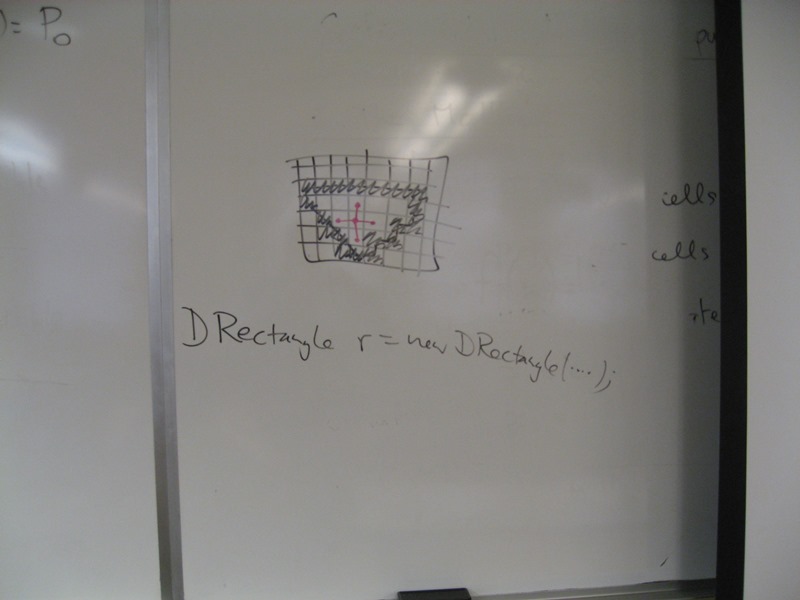 )= P₀
cells
cells
DRectangle r = new DRectangle(....);